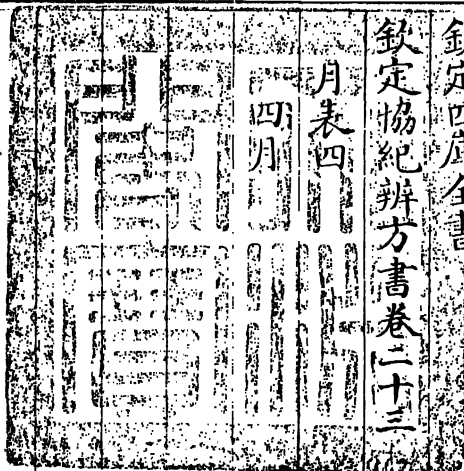 欽定四庫全書
欽定協紀辨方書卷二十三
月表四
四月